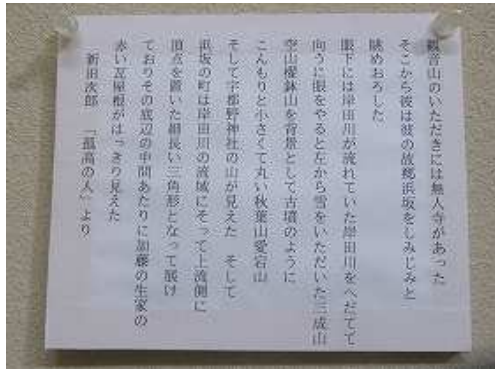 観音山のいただきには無人寺があった
そこから彼は彼の故郷浜坂をしみじみと
眺めおろした
眼下には岸田川が流れていた岸田川をへだてて
向うに眼をやると左から雪をいただいた三成山
空山欅鉢山を背景として古墳のように
こんもりと小さくて丸い秋葉山愛宕山
そして宇都野神社の山が見えた そして
浜坂の町は岸田川の流域にそって上流側に
頂点を置いた細長い三角形となって展け
ておりその底辺の中間あたりに加藤の生家の
赤い瓦屋根がはっきり見えた
新田次郎 「孤高の人」より